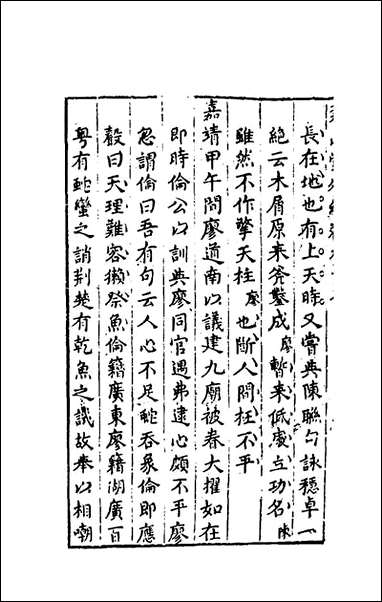 長在地也有上天時又嘗與陳聯句詠穩卓一
絕云木屑原来斧鑿成廖暫来低處立功名陳
雖然不作擎天柱廖也斷人間枉不平
嘉靖甲午間廖道南以議建九廟被眷大擢如在
即時倫公以訓典廖同官遇弗逮心頗不平廖
忽謂倫曰吾有句云人心不足蛇吞象倫即應
聲曰天理難容獺祭魚倫籍廣東廖籍湖廣百
粤有蛇蠻之誚荆楚有乾魚之譏故奉以相嘲